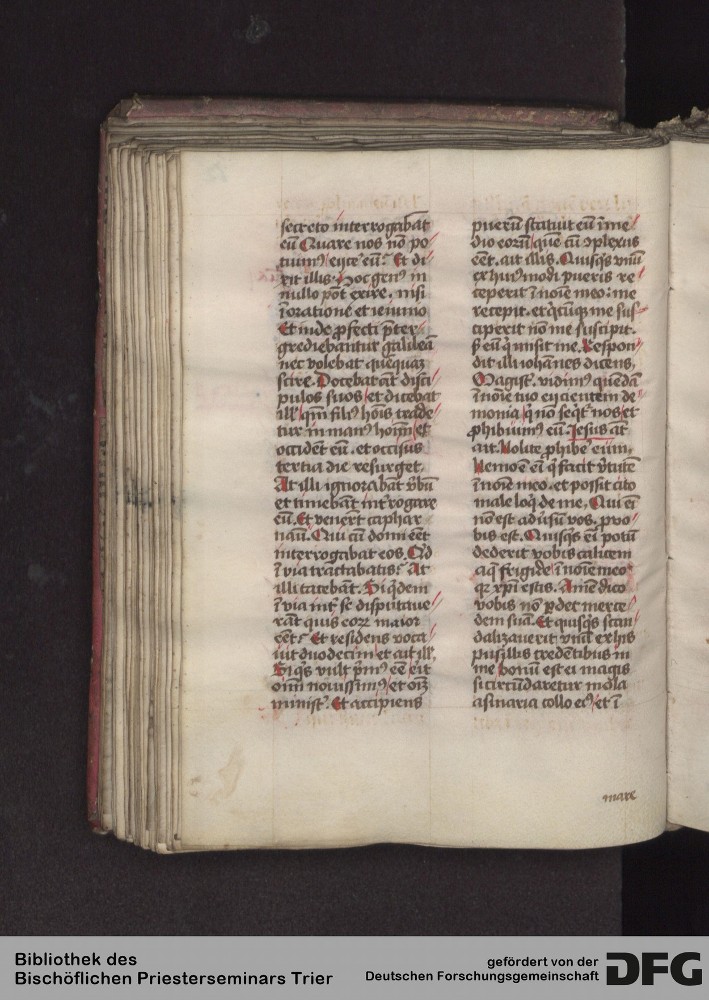 secreto interrogabāt
eū Quare nos nō po
tuimꝰ eijce eū? Et di
xit illis Hoc genꝰ in
nullo pōt exire. nisi
ī oratione et ieiunio
Et inde ꝓfecti p̄ter
grediebantur galileā
nec volebat quēquaꝫ
scire. Docebat aūt disci
pulos suos et dicebat
ill' qm̄ filiꝰ hoīs trade
tur in manꝰ hoīm et
occidēt eū. et occisus
tertia die resurget.
At illi ignorabāt v̄bū
et timebāt int'rogare
eū. Et venert caphar
naū. Qui cū domi eēt
interrogabat eos. Qd
ī via tractabatis? At
illi tacebāt. Siq̇dem
ī via int' se disputaue
rāt quis eoꝝ maior
eēt? Et residens voca
uit duodecim et ait ill'.
Si q's vult p̄mꝰ eē erit
oīm nouissimꝰ et oīꝫ
minist'. Et accipiens
puerū statuit eū ī me
dio eorū que cū ꝯplexus
eēt. ait illis. Quisq's vnū
ex huiꝰmodi pueris re
ceperit ī noīe meo: me
recepit. et q̇cūq; me sus
ceperit nō me suscipit.
s̄ eū q̇ misit me. Respon
dit illi iohānes dicens.
Magist'. vidimꝰ quēdā
ī noīe tuo eijcientem de
monia q̇ nō seq̇t' nos et
ꝓhibuimꝰ eū. Jesus aūt
ait. Nolite ꝓhibe' eum.
Nemo ē eī q̇ facit v̄tutē
ī noīe meo. et possit cito
male loq̇ de me. Qui eī
nō est aduīsu vos. pro
bis est. Quisq's eī potū
dederit vobis calicem
aq̄ frigide ī noīe meo
qꝛ xp̄i estis. Amē dico
vobis nō ꝑdet merce
dem suā. Et quisq's scan
dalizauerit vnū ex his
pusillis credētibus in
me bonū est ei magis
si circūdaretur mola
asinaria collo eiꝰ et ī
mare
Bibliothek des
Bischöflichen Priesterseminars Trier
gefördert von der
Deutschen Forschungsgemeinschaft
DFG